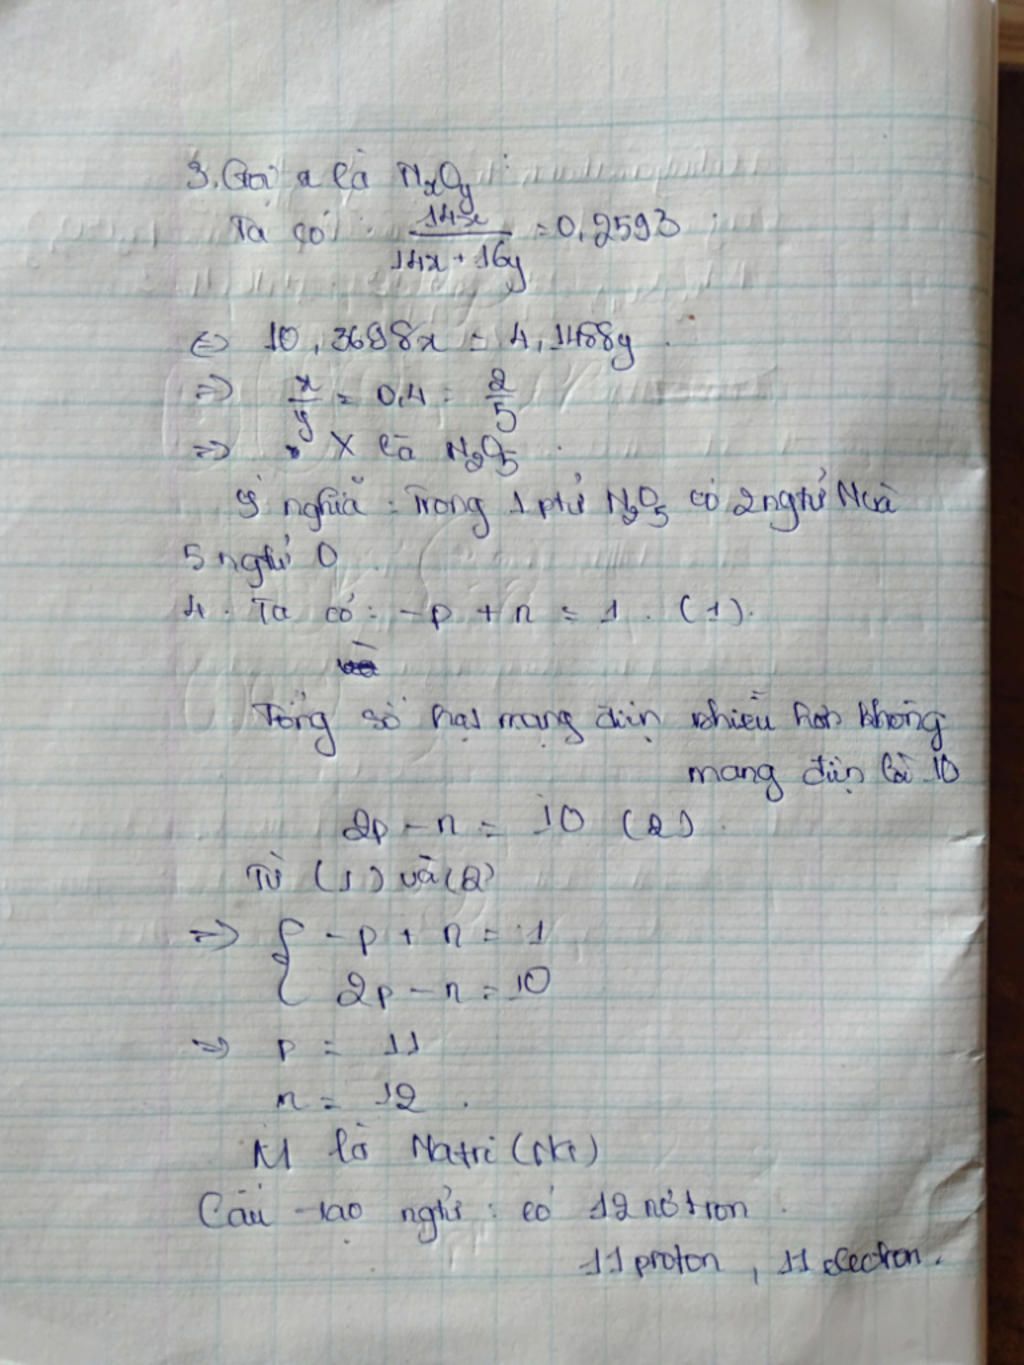 3. Gọi x là NxOy
Ta có: 14x / (14x + 16y) = 0,2593
<=> 10,3698x = 4,1488y
=> x/y = 0,4 = 2/5
=> X là N2O5
Ý nghĩa: Trong 1 ptử N2O5 có 2 ngtử N và
5 ngtử O
4. Ta có: -p + n = 1. (1).
Tổng số hạt mang điện nhiều hơn không
mang điện là 10
2p - n = 10 (2)
Từ (1) và (2)
=> { -p + n = 1
2p - n = 10
=> p = 11
n = 12.
M là Natri (Na)
Cấu tạo ngtử: có 12 nơtron
11 proton, 11 electron.